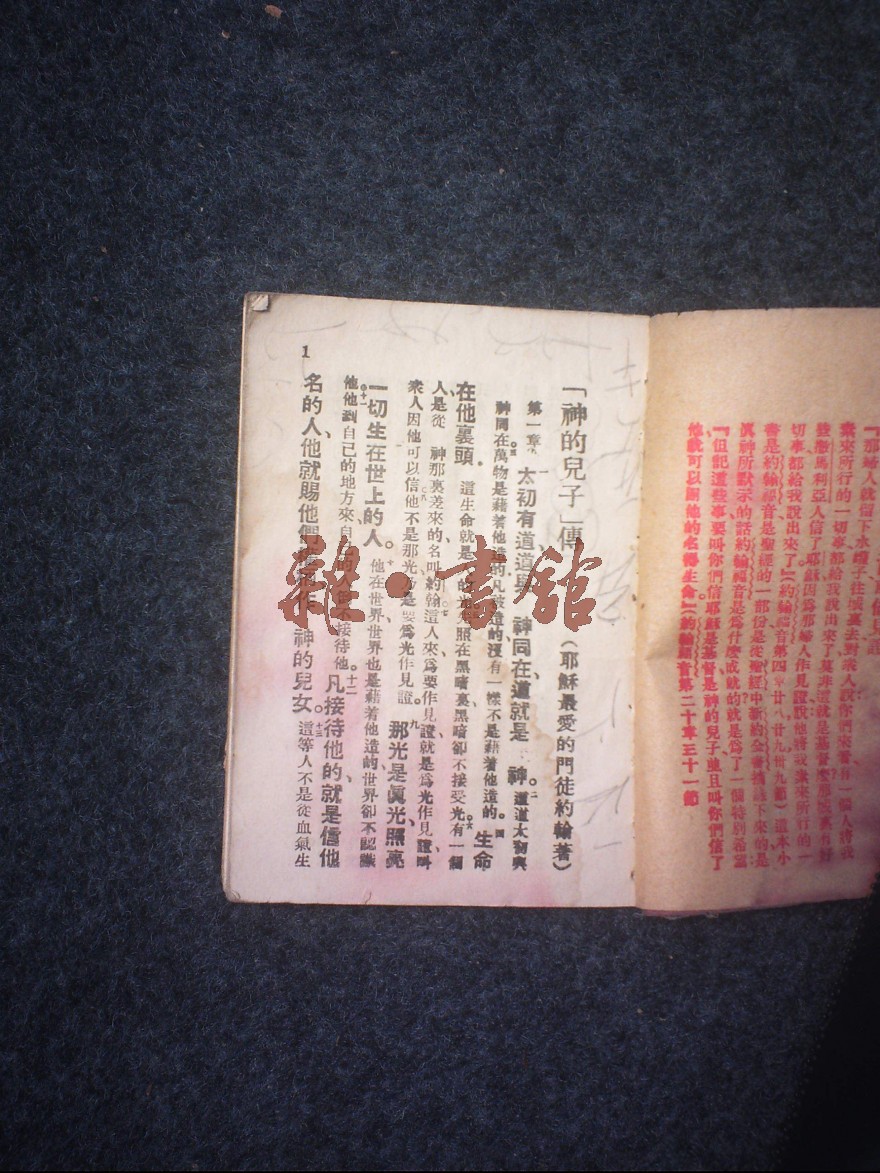 「那婦人就留下水罐子往城裏去對衆人說你們來看有一個人將我
素來所行的一切事都給我說出來了莫非這就是基督麼那城裏有好
些撒馬利亞人信了耶穌因爲那婦人作見證說他將我素來所行的一
切事都給我說出來了」(約翰福音第四章廿八廿九卅九節)這本小
書是約翰福音是聖經的一部份是從聖經中新約全書摘錄下來的是
眞神所默示的話約翰福音是爲什麼成就的就是爲了一個特別希望
「但記這些事要叫你們信耶穌是基督是神的兒子並且叫你們信了
他就可以因他的名得生命」(約翰福音第二十章三十一節
「神的兒子」傳 (耶穌最愛的門徒約翰著)
第一章 太初有道道與 神同在道就是 神。二 這道太初與
神同在。三 萬物是藉着他造的凡被造的沒有一樣不是藉着他造的。四 生命
在他裏頭 這生命就是 的光 光照在黑暗裏黑暗卻不接受光。六 有一個
人是從 神那裏差來的名叫約翰。七 這人來爲要作見證就是爲光作見證叫
衆人因他可以信。八 他不是那光 是要爲光作見證。九 那光是眞光照亮
一切生在世上的人。十 他在世界世界也是藉着他造的世界卻不認識
他。十一 他到自己的地方來自己的人倒不接待他。十二 凡接待他的就是信他
名的人他就賜他們 作 神的兒女。十三 這等人不是從血氣生
1
雜·書館